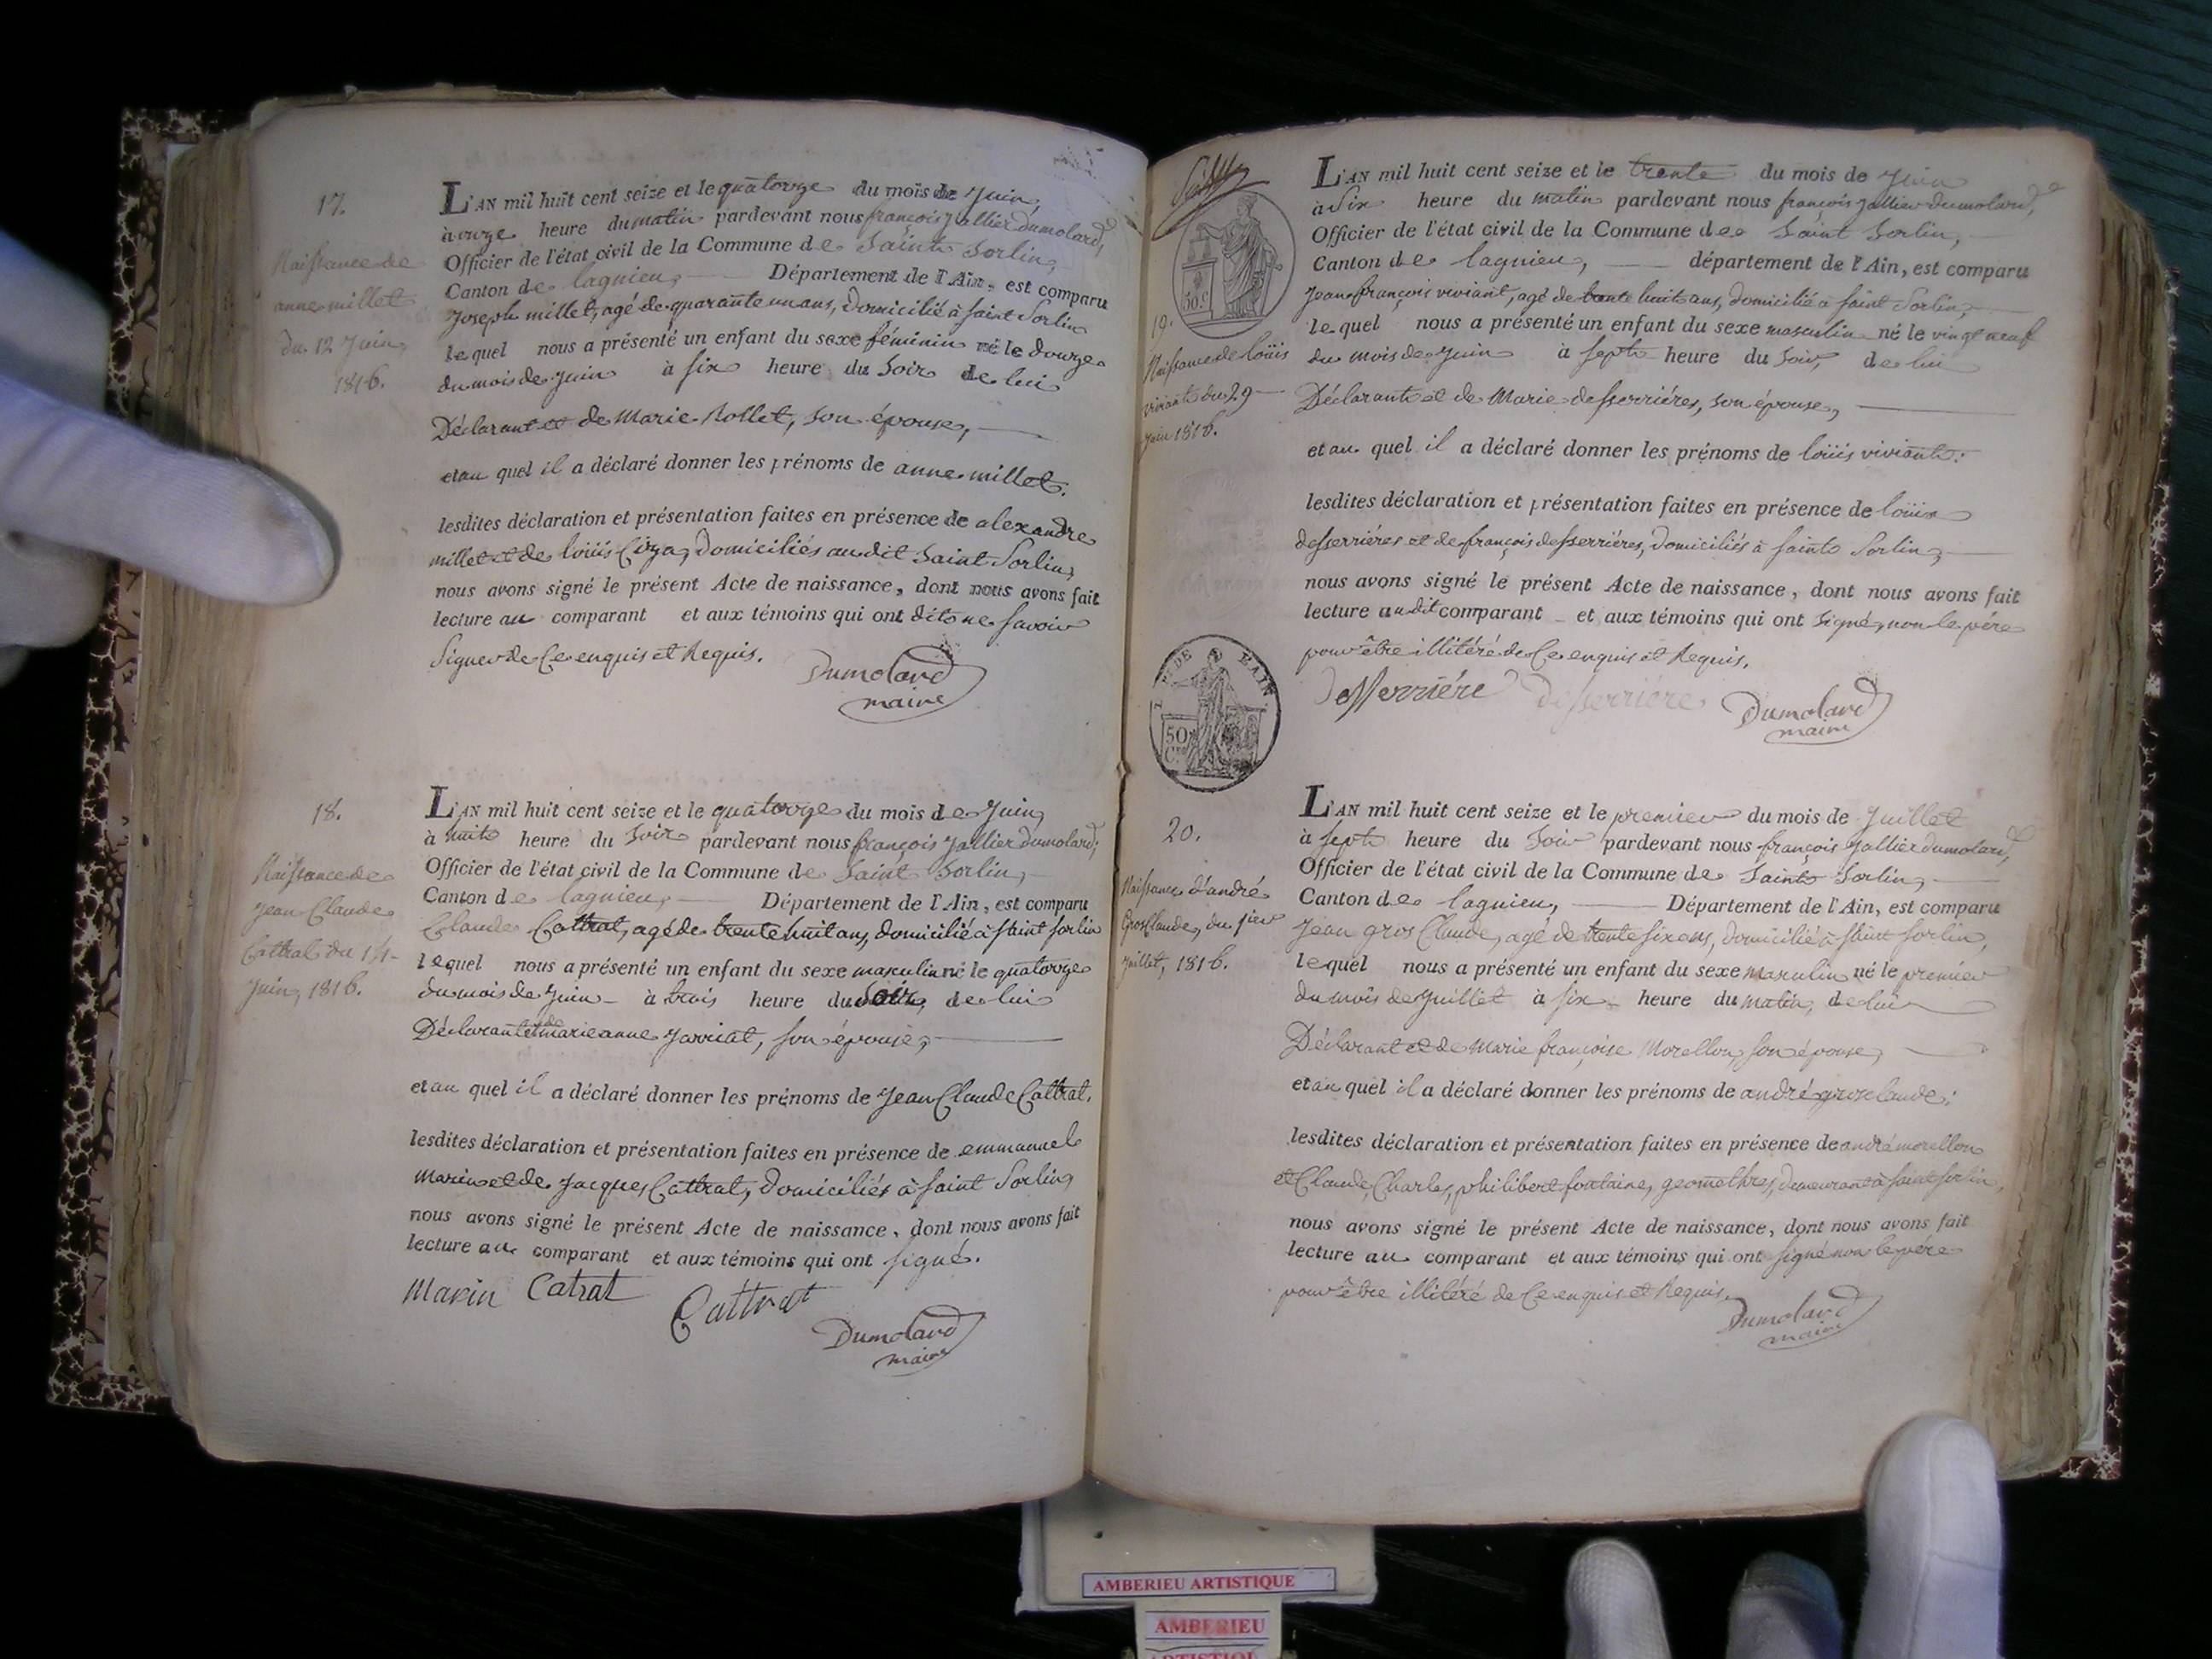 17.
Naissance de
anne millet
du 12 Juin,
1816.
L'AN mil huit cent seize et le quatorze du mois de Juin,
à onze heure du matin pardevant nous françois Jallier dumolard,
Officier de l'état civil de la Commune de Saint Sorlin,
Canton de lagnieu, Département de l'Ain, est comparu
Joseph millet, agé de quarante un ans, domicilié à saint Sorlin
lequel nous a présenté un enfant du sexe féminin né le douze
du mois de Juin à six heure du Soir de lui
Déclarant et de Marie Rollet, son épouse,
et au quel il a déclaré donner les prénoms de anne millet.
lesdites déclaration et présentation faites en présence de alexandre
millet et de loüis Ciza, Domiciliés audit Saint Sorlin,
nous avons signé le présent Acte de naissance, dont nous avons fait
lecture au comparant et aux témoins qui ont dit ne savoir
Signer de Ce enquis et Requis.
Dumolard
maire
18.
Naissance de
Jean Claude
Cattrat du 14
Juin, 1816.
L'AN mil huit cent seize et le quatorze du mois de Juin,
à huit heure du Soir pardevant nous françois Jallier dumolard,
Officier de l'état civil de la Commune de Saint Sorlin,
Canton de lagnieu, Département de l'Ain, est comparu
Claude Cattrat, agé de trente huit ans, domicilié à saint sorlin
lequel nous a présenté un enfant du sexe masculin né le quatorze
du mois de Juin à trois heure du Soir, de lui
Déclarant et de marie anne Jarriat, son épouse,
et au quel il a déclaré donner les prénoms de Jean Claude Cattrat.
lesdites déclaration et présentation faites en présence de emmanuel
Marin et de Jacques Cattrat, domiciliés à saint Sorlin,
nous avons signé le présent Acte de naissance, dont nous avons fait
lecture au comparant et aux témoins qui ont signé.
Marin Catrat Cattrat
Dumolard
maire
50 c.
19.
Naissance de loüis
viviant du 29
Juin 1816.
L'AN mil huit cent seize et le trente du mois de Juin
à Six heure du matin pardevant nous françois Jallier dumolard,
Officier de l'état civil de la Commune de Saint Sorlin,
Canton de lagnieu, département de l'Ain, est comparu
Jean françois viviant, agé de trente huit ans, domicilié a saint Sorlin,
lequel nous a présenté un enfant du sexe masculin né le vingt neuf
du mois de Juin à sept heure du Soir, de lui
Déclarant et de Marie desserriéres, son épouse,
et au quel il a déclaré donner les prénoms de loüis viviant:
lesdites déclaration et présentation faites en présence de loüis
desserriéres et de françois desserriéres, domiciliés à saint Sorlin,
nous avons signé le présent Acte de naissance, dont nous avons fait
lecture audit comparant et aux témoins qui ont signé, non le pére
pour être illitéré de Ce enquis et Requis.
Desserriére desserriére Dumolard
maire
DE L'AIN
50
C.
20.
Naissance d'andré
Gros Claude, du 1ier
Juillet, 1816.
L'AN mil huit cent seize et le premier du mois de Juillet
à sept heure du Soir pardevant nous françois Jallier dumolard,
Officier de l'état civil de la Commune de Saint Sorlin,
Canton de lagnieu, Département de l'Ain, est comparu
Jean gros Claude, agé de trente six ans, domicilié à saint sorlin,
lequel nous a présenté un enfant du sexe masculin né le premier
du mois de Juillet à six heure du matin, de lui
Déclarant et de marie françoise Morellon, son épouse,
et au quel il a déclaré donner les prénoms de andré gros claude:
lesdites déclaration et présentation faites en présence de andré morellon
et Claude, Charles, philibert fontaine, geomethres, demeurant à saint sorlin,
nous avons signé le présent Acte de naissance, dont nous avons fait
lecture au comparant et aux témoins qui ont signé non le pére
pour être illitéré de Ce enquis et Requis.
Dumolard
maire
AMBERIEU ARTISTIQUE
AMBERIEU
ARTISTIQUE